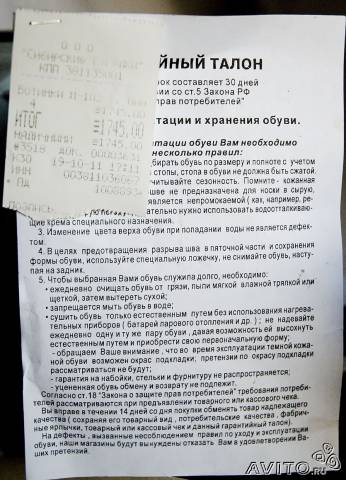 ООО
"СИБИРСКИЕ
КПП 381135001
БОТИНКИ
4 ≡1745.00
ИТОГ ≡1745.00
≡1745.00
#3518 ДОК.
К30 19-10-11 17:11
ИНН 003811036073
ПД
ЙНЫЙ ТАЛОН
рок составляет 30 дней
ии со ст.5 Закона РФ
прав потребителей"
тации и хранения обуви.
тации обуви Вам необходимо
несколько правил:
бирать обувь по размеру и полноте с учетом
стопы, стопа в обуви не должна быть сжатой,
считывайте сезонность. Помните - кожанная
шве не предназначена для носки в сырую,
является непромокаемой ( как, например, ре-
ательно нужно использовать водоотталкиваю-
щие крема специального назначения.
3. Изменение цвета верха обуви при попадании воды не является дефек-
том.
4. В целях предотвращения разрыва шва в пяточной части и сохранения
формы обуви, используйте специальную ложечку, не снимайте обувь, насту-
пая на задник.
5. Чтобы выбранная Вами обувь служила долго, необходимо:
• ежедневно очищать обувь от грязи, пыли мягкой влажной тряпкой или
щеткой, затем вытереть сухой;
• запрещается мыть обувь в воде;
• сушить обувь только естественным путем без использования нагрева-
тельных приборов ( батарей парового отопления и др ) ; не надевайте
ежедневно одну и ту же пару обуви , давая возможность ей высохнуть
естественным путем и приобрести свою первоначальную форму;
- обращаем Ваше внимание , что во время эксплуатации темной кожа-
ной обуви возможен окрас подкладки; претензии по окрасу подкладки
рассматриваться не будут;
- гарантия на набойки, стельки и фурнитуру не распространяется;
- уцененная обувь обмену и возврату не подлежит.
Согласно ст.18 "Закона о защите прав потребителей" требования потреби-
телей рассматриваются при предъявлении товарного или кассового чека.
Вы вправе в течении 14 дней со дня покупки обменять товар надлежащего
качества ( сохраняя его товарный вид , потребительские качества , фабрич-
ные ярлычки, товарный или кассовый чек и данный гарантийный талон).
На дефекты , вызванные несоблюдением правил по уходу и эксплуатации
обуви, наши магазины будут вынуждены отказать Вам в удовлетворении Ва-
ших претензий.
AVITO.ru